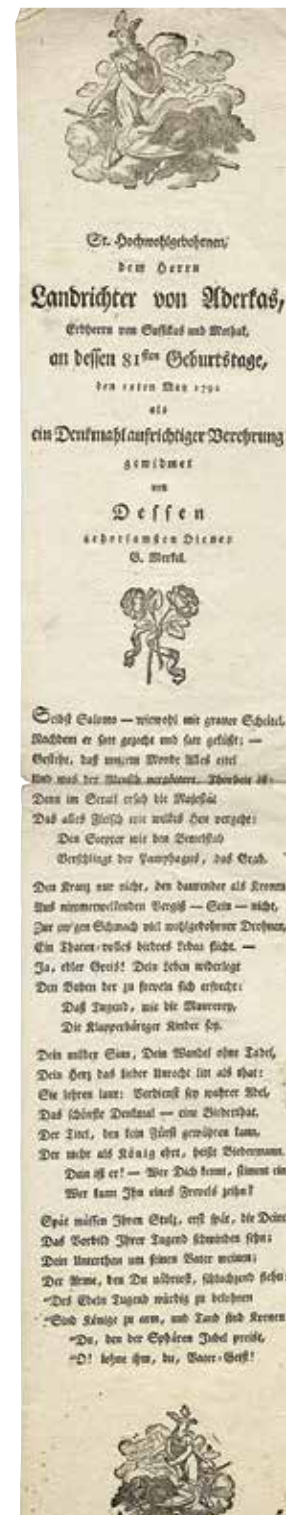 Sr. Hochwohlgebohrnen,
dem Herrn
Landrichter von Aderkas,
Erbherrn von
an dessen 81sten Geburtstage,
den 10ten May 1792
als
ein Denkmahl aufrichtiger Verehrung
gewidmet
von
Dessen
gehorsamsten Diener
G. Merkel.
Selbst Salomo — wiewohl mit grauer Scheitel,
Nachdem er satt gezecht und satt geküßt; —
Gestehe, daß unterm Monde Alles eitel
Und was der Mensch vergöttere, Thorheit ist:
Denn im Serail ersah die Majestät
Das alles Fleisch wie welkes Heu vergehe:
Den Scepter wie den Bettelstab
Verschlingt der Pamphagus, das Grab.
Den Kranz nur nicht, den daurender als Kronen
Aus nimmerwelkenden Vergiß — Sein — nicht,
Zur ew'gen Schmach viel wohlgebohrner Drohnen,
Ein Thaten-volles biedres Leben flicht. —
Ja, edler Greis! Dein Leben widerlegt
Den Buben der zu freveln sich erfrecht:
Daß Tugend, wie die Maurerey,
Die Klapperbärtger Kinder sey.
Dein milder Sinn, Dein Wandel ohne Tadel,
Dein Herz das lieber Unrecht litt als that:
Sie lehren laut: Verdienst sey wahrer Adel,
Das schönste Denkmal — eine Biederthat.
Der Titel, den kein Fürst gewähren kann,
Der mehr als König ehrt, heiße Biedermann.
Dein ist er! — Wer Dich kennt, stimmt ein
Wer kann Ihn eines Frevels zeihn?
Spät müssen Ihren Stolz, erst spät, die Deine
Das Vorbild Ihrer Tugend schwinden sehn;
Dein Unterthan um seinen Vater weinen;
Der Arme, den Du nährtest, schluchzend stehn:
"Des Edeln Tugend würdig zu belohnen
"Sind Könige zu arm, und Tand sind Kronen
"Du, den der Sphären Jubel preist,
"O! lohne ihm, du, Vater-Geist!